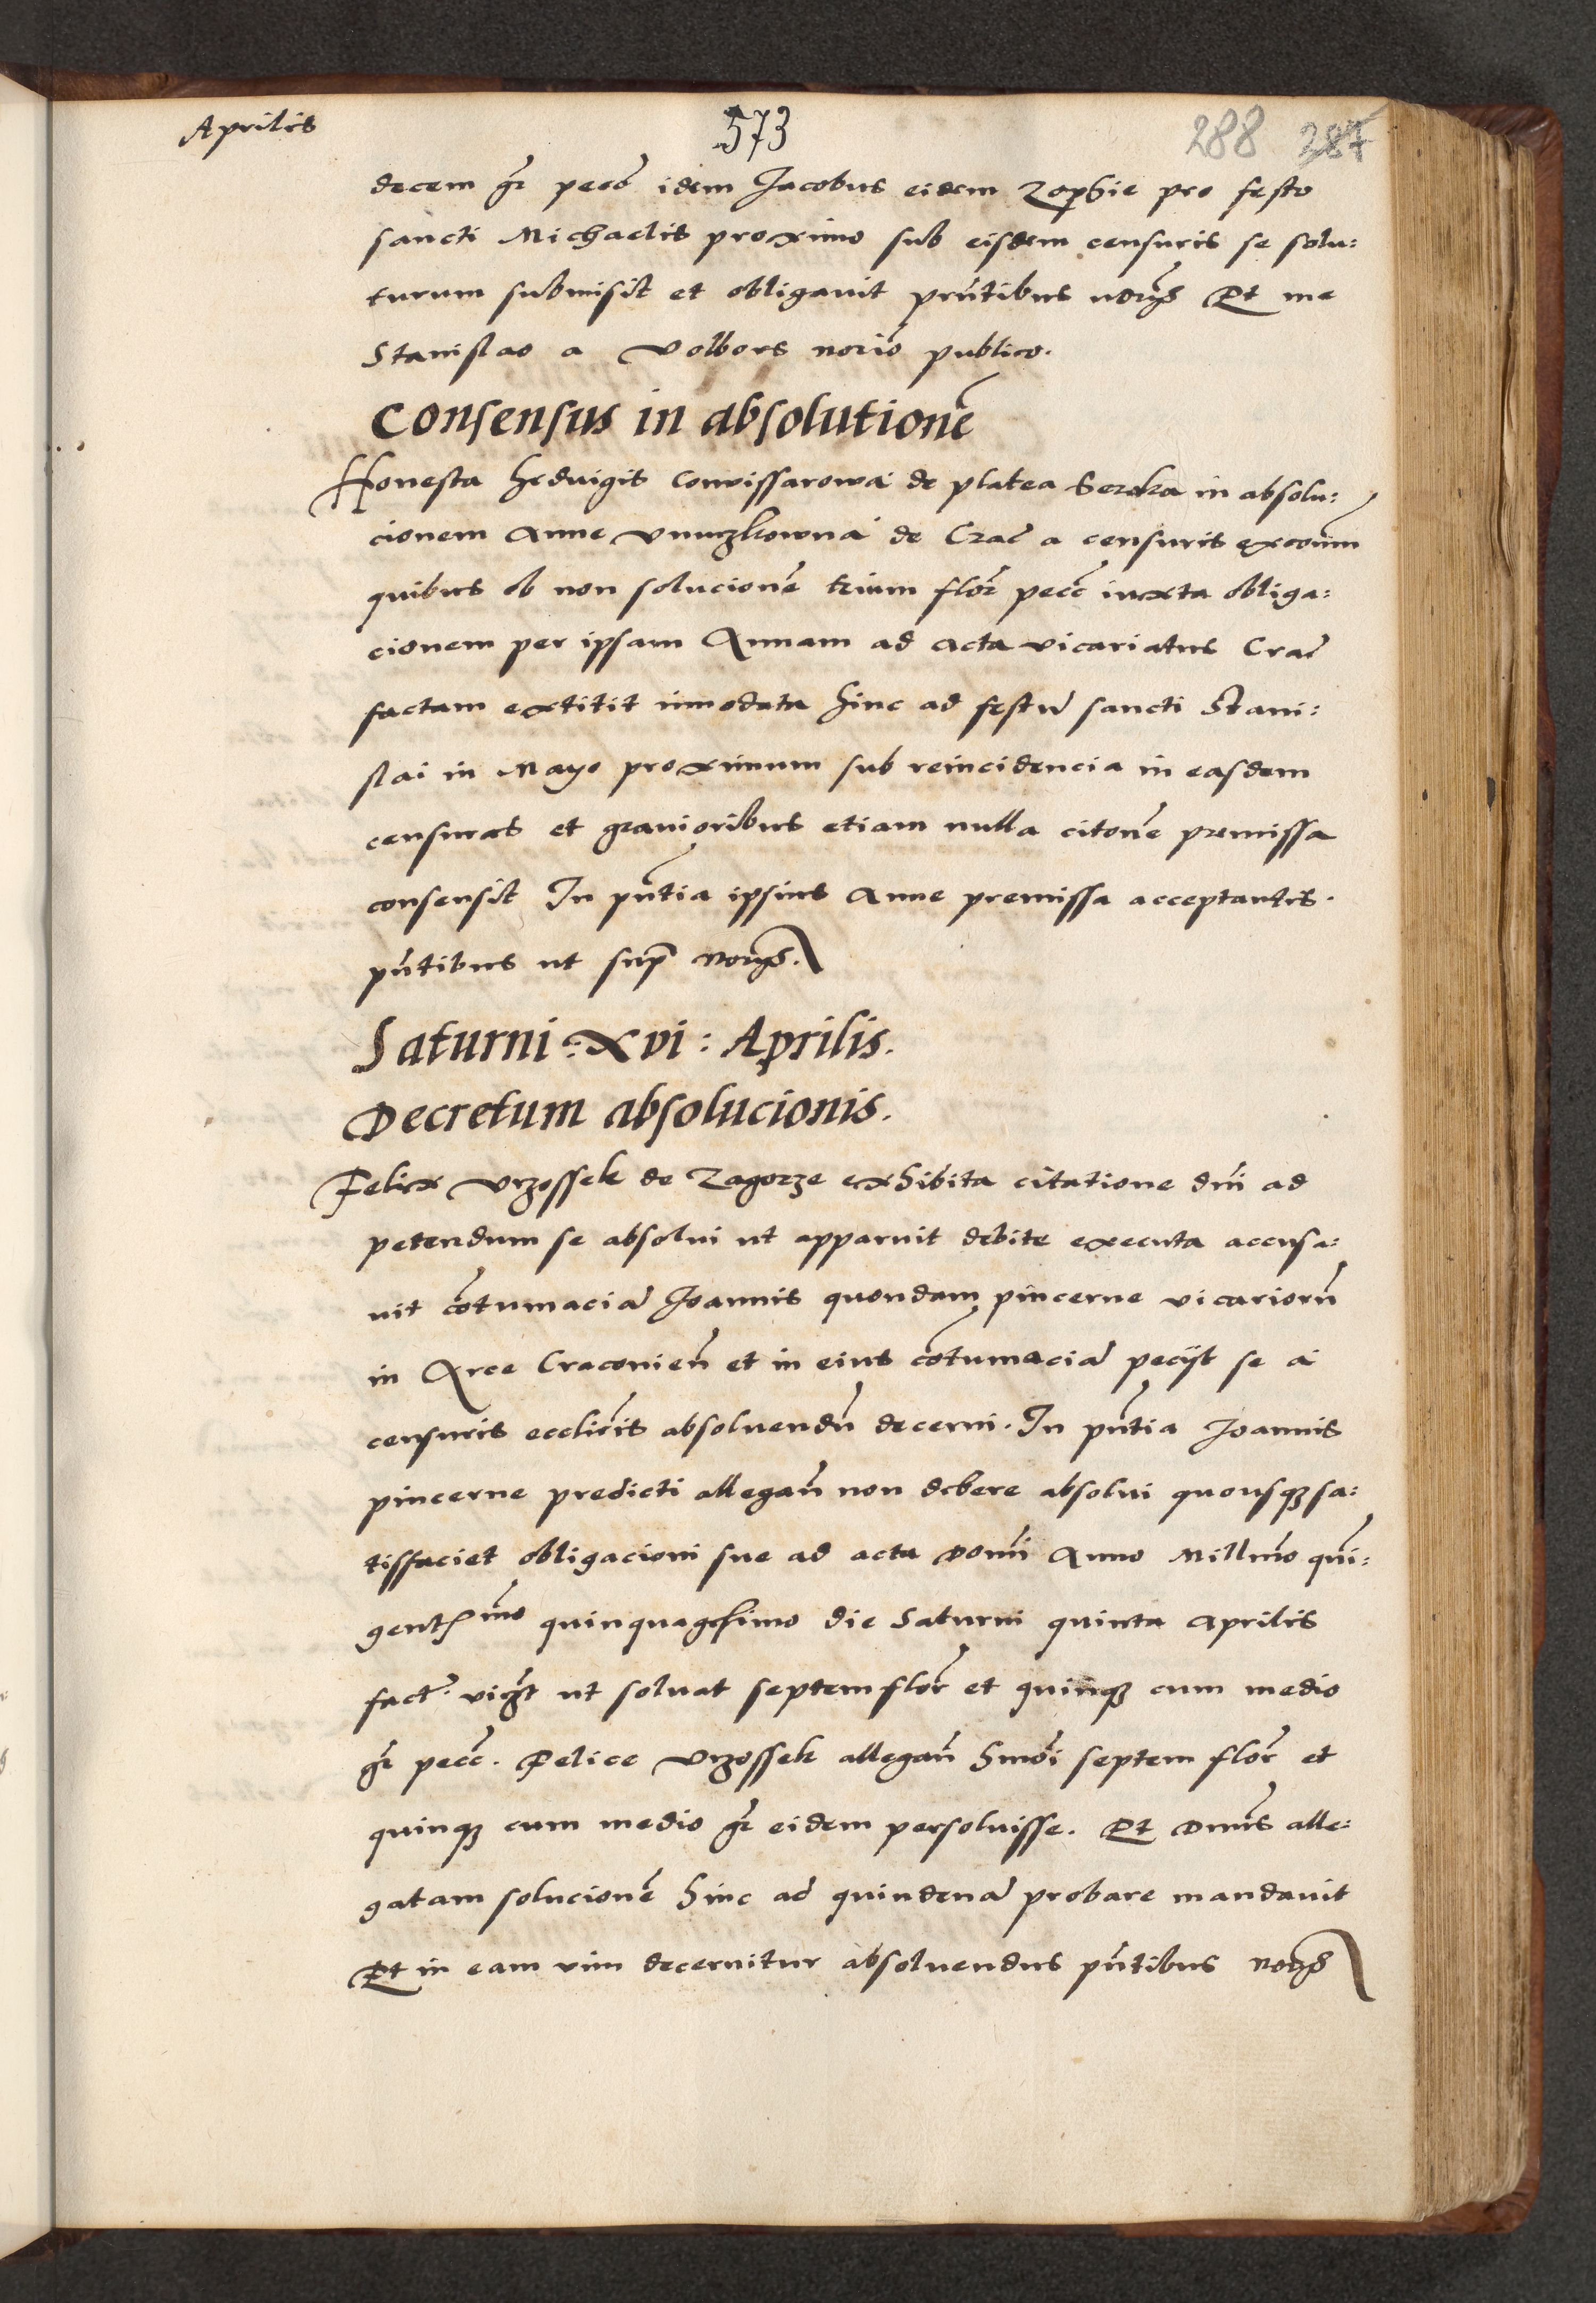 Aprilis
573
288 287
decem gr̃ pecõ idem Jacobus eidem Zophie pro festo
sancti Michaelis proximo sub eisdem censuris se solu:
turum submisit et obligauit prñtibus Et me
Stanislao a Volbors norio publico.
Consensus in absolutionẽ
Honesta heduigis Conwissarowa de platea Seroka in absolu:
cionem Anne de Crac̃ a censuris excom̃
quibus ob non solucionẽ trium flor̃ pecc̃ iuxta obliga:
cionem per ipsam Annam ad acta vicariatus Crac̃
factam extitit innodata hinc ad festũ sancti Stani:
slai in Mayo proximum sub reincidencia in easdem
censuras et grauioribus etiam nulla citoñe premissa
consensit In pñtia ipsius Anne premissa acceptantis.
pñtibus ut sup̃
Saturni : xvi : Aprilis.
Decretum absolucionis.
Felix Vrzossek de Zagorze exhibita citatione dñi ad
petendum se absolui ut apparuit debite executa accusa:
uit cõtumaciã Joannis quondam pincerne vicariorũ
in Arce Cracouieñ et in eius cõtumaciã pecijt se a
censuris ecclicis absoluendũ decerni. In pñtia Joannis
pincerne predicti allegañ non debere absolui quousqȝ sa:
tisfaciet obligacioni sue ad acta Domi Anno Millm̃o qui:
gentmo quinquagesimo die Saturni quinta Aprilis
fact̃. vigt ut soluat septem flor̃ et quinqȝ cum medio
gr̃ pecc̃. Felice Vrzossek allegañ hmoi septem flor̃ et
quinqȝ cum medio gr̃ eidem persoluisse. Et Dnũs alle:
gatam solucionẽ hinc ad quindenã probare mandauit
Et in eam vim decernitur absoluendus pñtibus